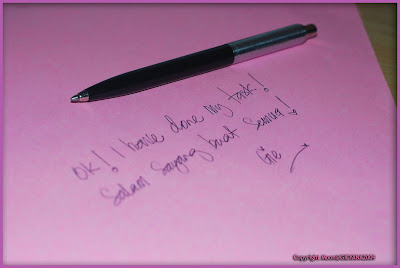 OK! I have done my task!
Salam Sayang buat Semua!
Gie